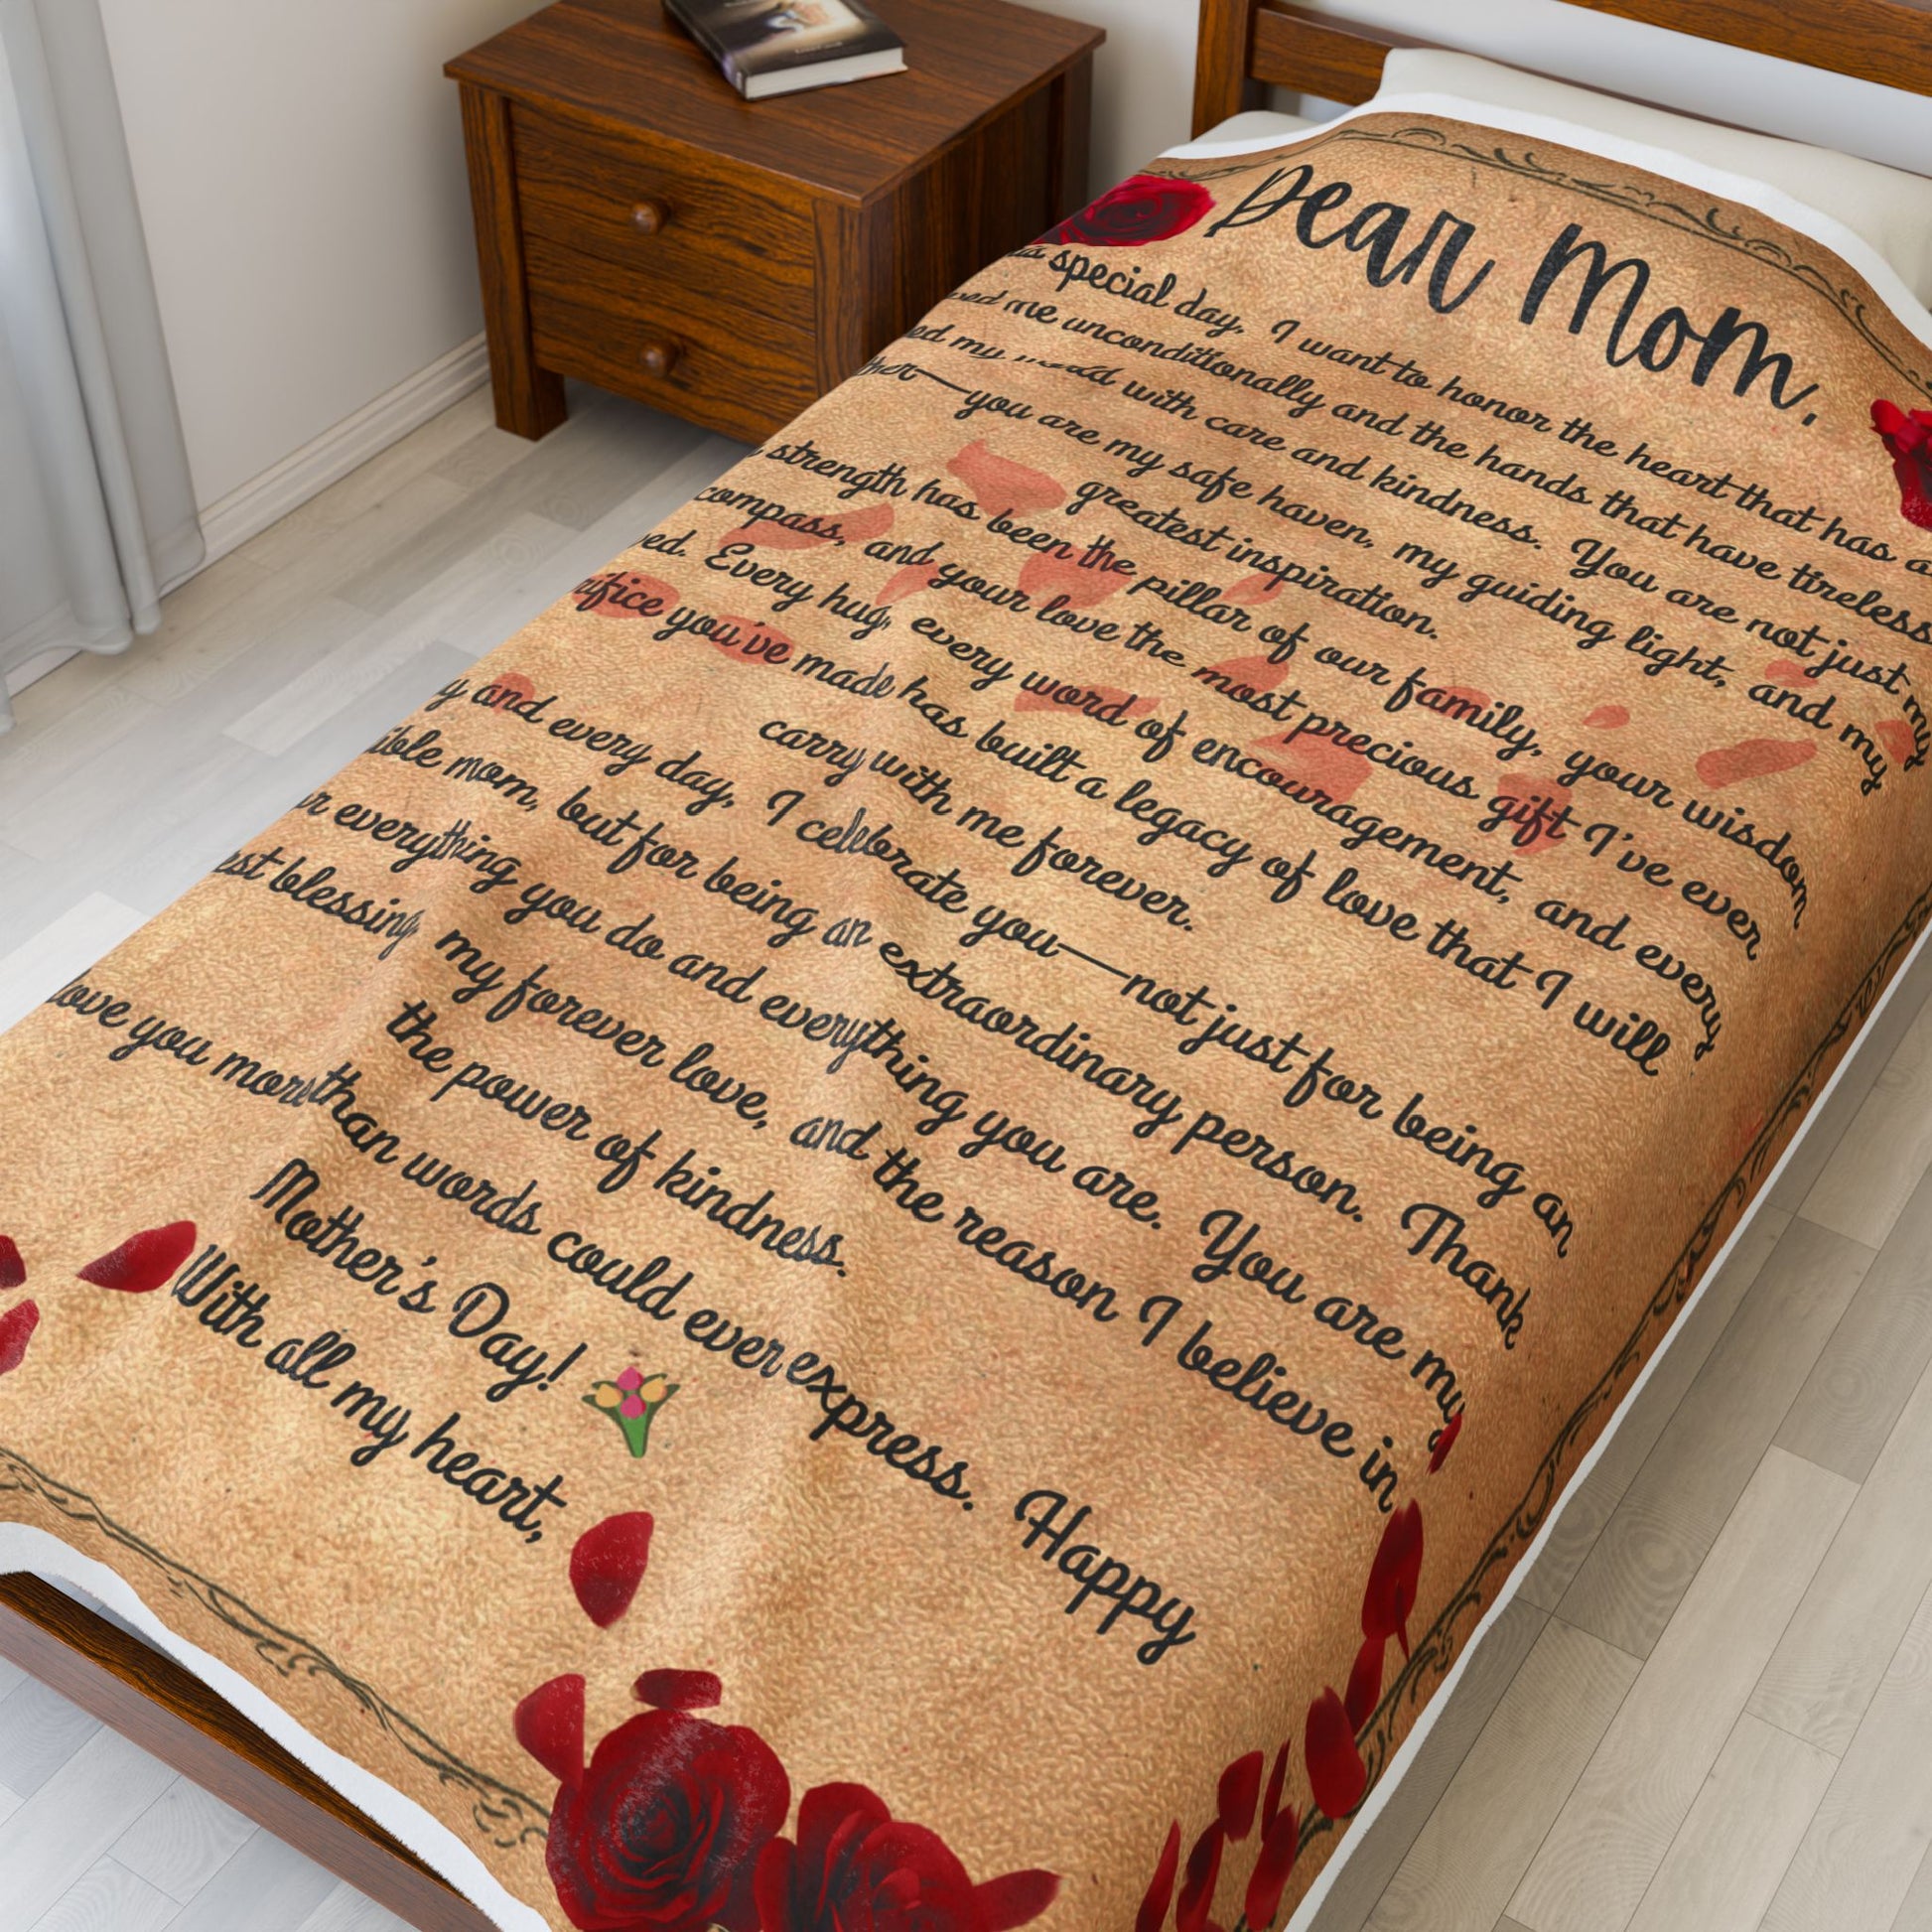 Dear Mom,
special day, I want to honor the heart that has
me unconditionally and the hands that have
my with care and kindness. You are not just my
—you are my safe haven, my guiding light, and my
greatest inspiration.
strength has been the pillar of our family, your wisdom
compass, and your love the most precious gift I've ever
Every hug, every word of encouragement, and every
you've made has built a legacy of love that I will
carry with me forever.
and every day, I celebrate you—not just for being an
mom, but for being an extraordinary person. Thank
everything you do and everything you are. You are my
blessing, my forever love, and the reason I believe in
the power of kindness.
love you more than words could ever express. Happy
Mother's Day! 💐
With all my heart,